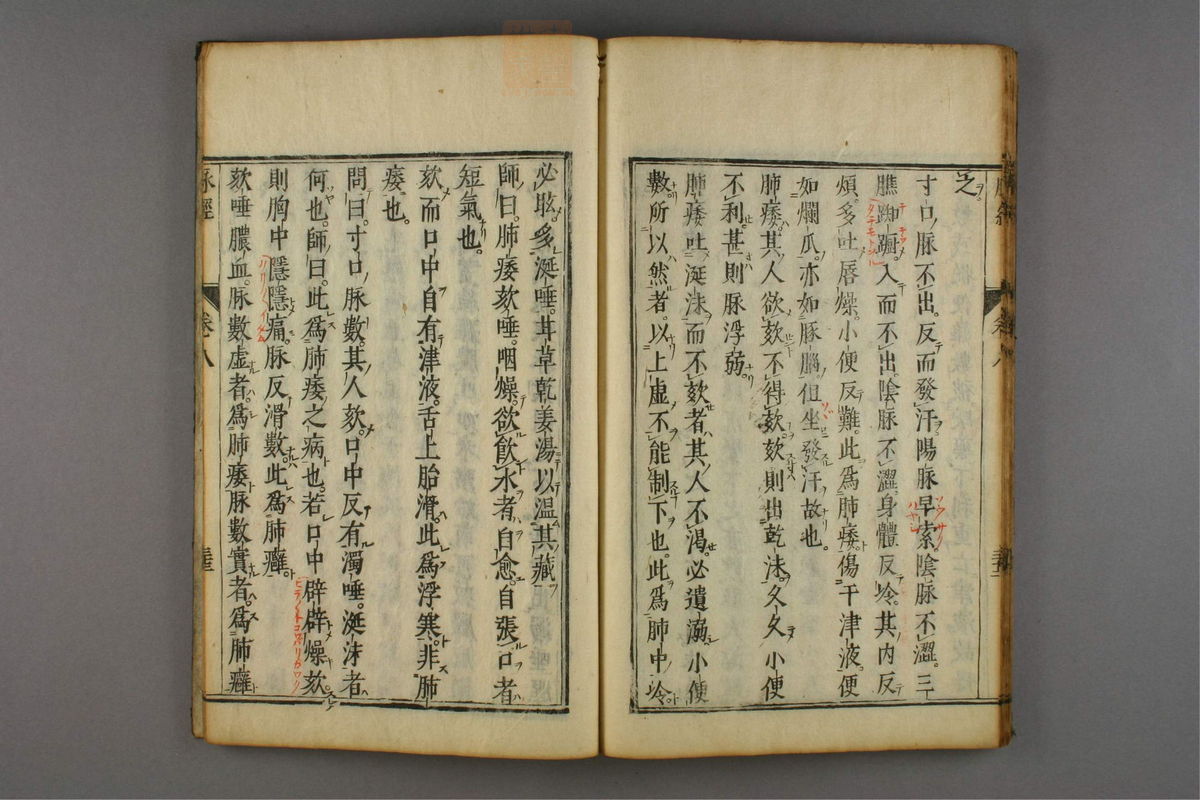 之。
寸口脉不出。反而發汗。陽脉早索。陰脉不澀。三
膲踟蹰。入而不出。陰脉不澀。身體反冷。其内反
煩。多吐唇燥。小便反難。此爲肺痿。傷于津液。便
如爛瓜。亦如豚腦。但坐發汗故也。
肺痿。其人欲欬不得欬。欬則出乾沫。久久小便
不利。甚則脉浮弱。
肺痿吐涎沫而不欬者。其人不渇。必遺溺。小便
數。所以然者。以上虚不能制下也。此爲肺中冷。
必眩。多涎唾。甘草乾姜湯以温其藏。
師曰。肺痿欬唾。咽燥。欲飲水者。自愈。自張口者。
短氣也。
欬而口中自有津液。舌上胎滑。此爲浮寒。非肺
痿也。
問曰。寸口脉數。其人欬。口中反有濁唾。涎沫者。
何也。師曰。此爲肺痿之病也。若口中辟辟燥欬。
則胸中隱隱痛。脉反滑數。此爲肺癰。
欬唾膿血。脉數虚者。爲肺痿。脉數實者。爲肺癰
脉經
卷八